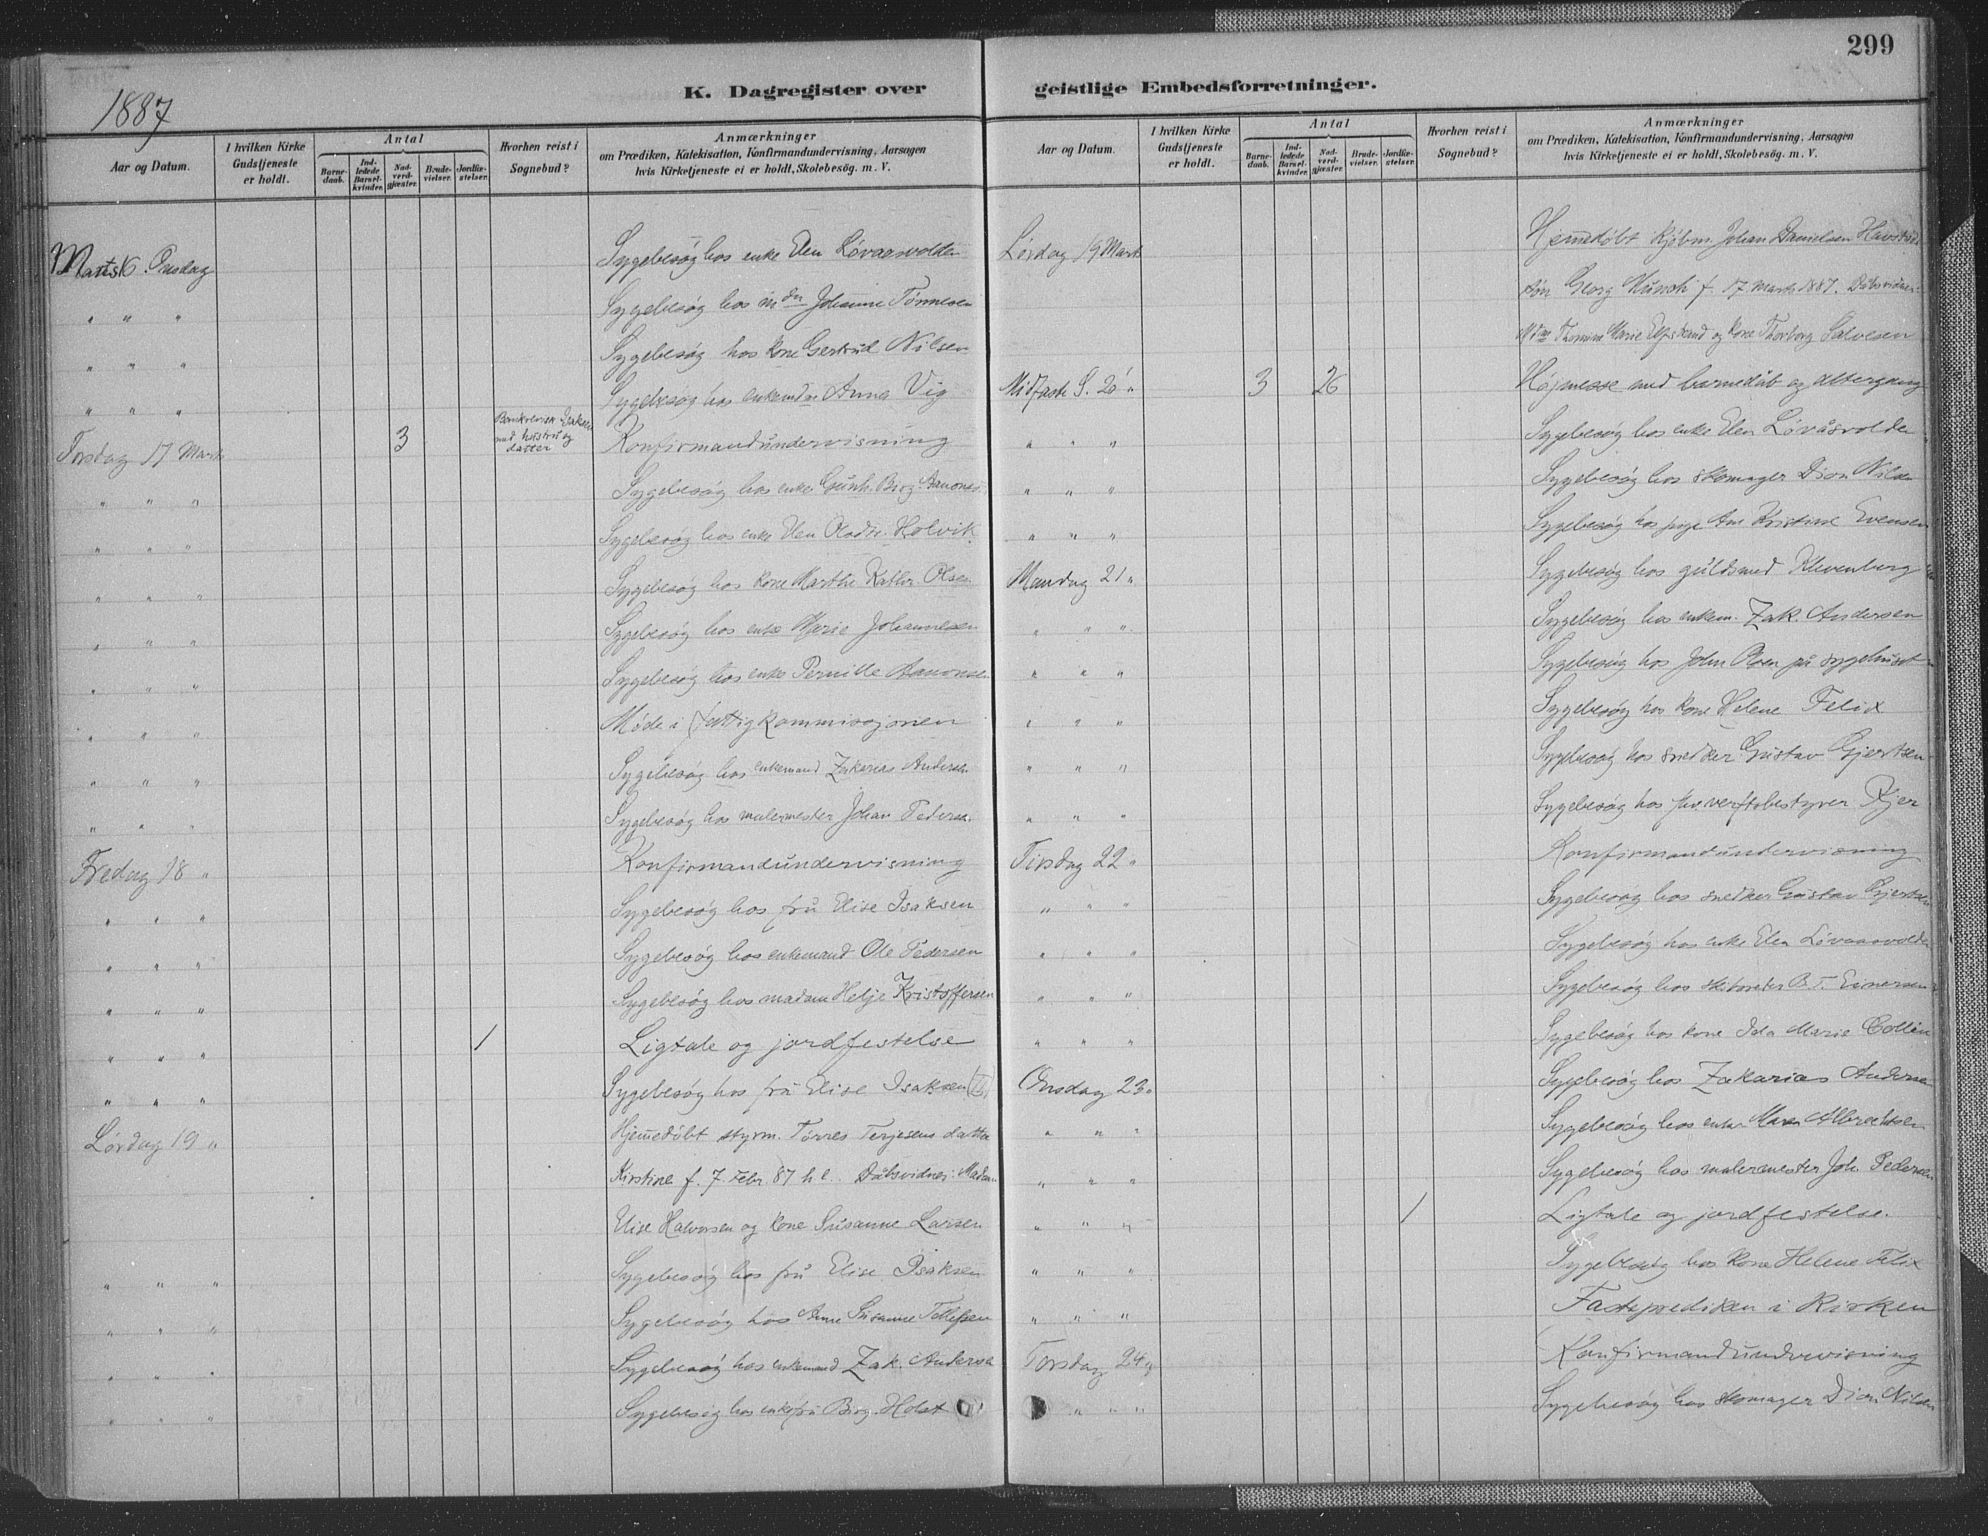 299
K. Dagregister over geistlige Embedsforretninger.
1887
Aar og Datum.
I hvilken Kirke Gudstjeneste er holdt.
Antal
Barnedaab.
Indledede Barselkvinder.
Nadverdgjæster.
Brudevielser.
Jordfæstelser.
Hvorhen reist i Sognebud?
Anmærkninger
om Prædiken, Katekisation, Konfirmandundervisning, Aarsagen
hvis Kirketjeneste ei er holdt, Skolebesög. m. V.
Marts 16. Onsdag Sygebesøg hos enke Elen Løvaasvolden
" " " Sygebesøg hos mdm Johanne Tønnesen
" " " Sygebesøg hos kone Gertrud Nilsen
" " " Sygebesøg hos Anna Vig
Torsdag 17 Marts 3 med hustru og datter Konfirmandundervisning
" " " Sygebesøg hos enke Gunh. Birg. Aanonsen
" " " Sygebesøg hos enke Elen Holvik
" " " Sygebesøg hos kone Marthe Kathr. Olsen
" " " Sygebesøg hos enke Marie Johannesen
" " " Sygebesøg hos enke Pernille Aanonsen
" " " Møde i fattigkommissjonen
" " " Sygebesøg hos enkemand Zakarias Andersen
" " " Sygebesøg hos malermester Johan Pedersen
Fredag 18 " Konfirmandundervisning
" " " Sygebesøg hos fru Elise Isaksen
" " " Sygebesøg hos enkemand Ole Pedersen
" " " Sygebesøg hos madam Helje Kristoffersen
" " " 1 Ligtale og jordfestelse
" " " Sygebesøg hos fru Elise Isaksen
Lørdag 19 " Hjemedøbt styrm. Tørres Terjesens datter
Kirstine f. 7 Febr. 87 h e. Dåbsvidner: Madam
Elise Halvorsen og kone Susanne Larsen
" " " Sygebesøg hos fru Elise Isaksen
" " " Sygebesøg hos Anne Susanne Tellefsen
" " " Sygebesøg hos enkemand Zak. Andersen
" " " Sygebesøg hos enkefru Birg. Holst
Aar og Datum.
I hvilken Kirke Gudstjeneste er holdt.
Antal
Barnedaab.
Indledede Barselkvinder.
Nadverdgjæster.
Brudevielser.
Jordfæstelser.
Hvorhen reist i Sognebud?
Anmærkninger
om Prædiken, Katekisation, Konfirmandundervisning, Aarsagen
hvis Kirketjeneste ei er holdt, Skolebesög. m. V.
Lørdag 19 Marts Hjemedøbt kjøbm. Johan Danielsen
søn Georg Munch f. 17 marts 1887. Dåbsvidner:
Marie og kone Thorborg Salvesen
Midfaste S. 20 " 3 26 Højmesse med barnedåb og altergang
" " " Sygebesøg hos enke Elen Løvåsvolden
" " " Sygebesøg hos skomager Dion Nilsen
" " " Sygebesøg hos pige Kristine Evensen
Mandag 21 " Sygebesøg hos guldsmed Klevenberg
" " " Sygebesøg hos enkem. Zak. Andersen
" " " Sygebesøg hos John Olsen på sygehuset
" " " Sygebesøg hos kone Helene Felix
" " " Sygebesøg hos snedker Gustav Gjertsen
" " " Sygebesøg hos verftsbestyrer Kjer
Tirsdag 22 " Konfirmandundervisning
" " " Sygebesøg hos snedker Gustav Gjertsen
" " " Sygebesøg hos enke Elen Løvaasvolden
" " " Sygebesøg hos B. T. Einersen
" " " Sygebesøg hos kone Ida Marie Collin
Onsdag 23 " Sygebesøg hos Zakarias Andersen
" " " Sygebesøg hos enke Maren Albrechtsen
" " " Sygebesøg hos malermester Joh. Pedersen
" " " 1 Ligtale og jordfestelse.
" " " Sygebesøg hos kone Helene Felix
" " " Fasteprediken i kirken
Torsdag 24 " Konfirmandundervisning
" " " Sygebesøg hos skomager Dion Nilsen